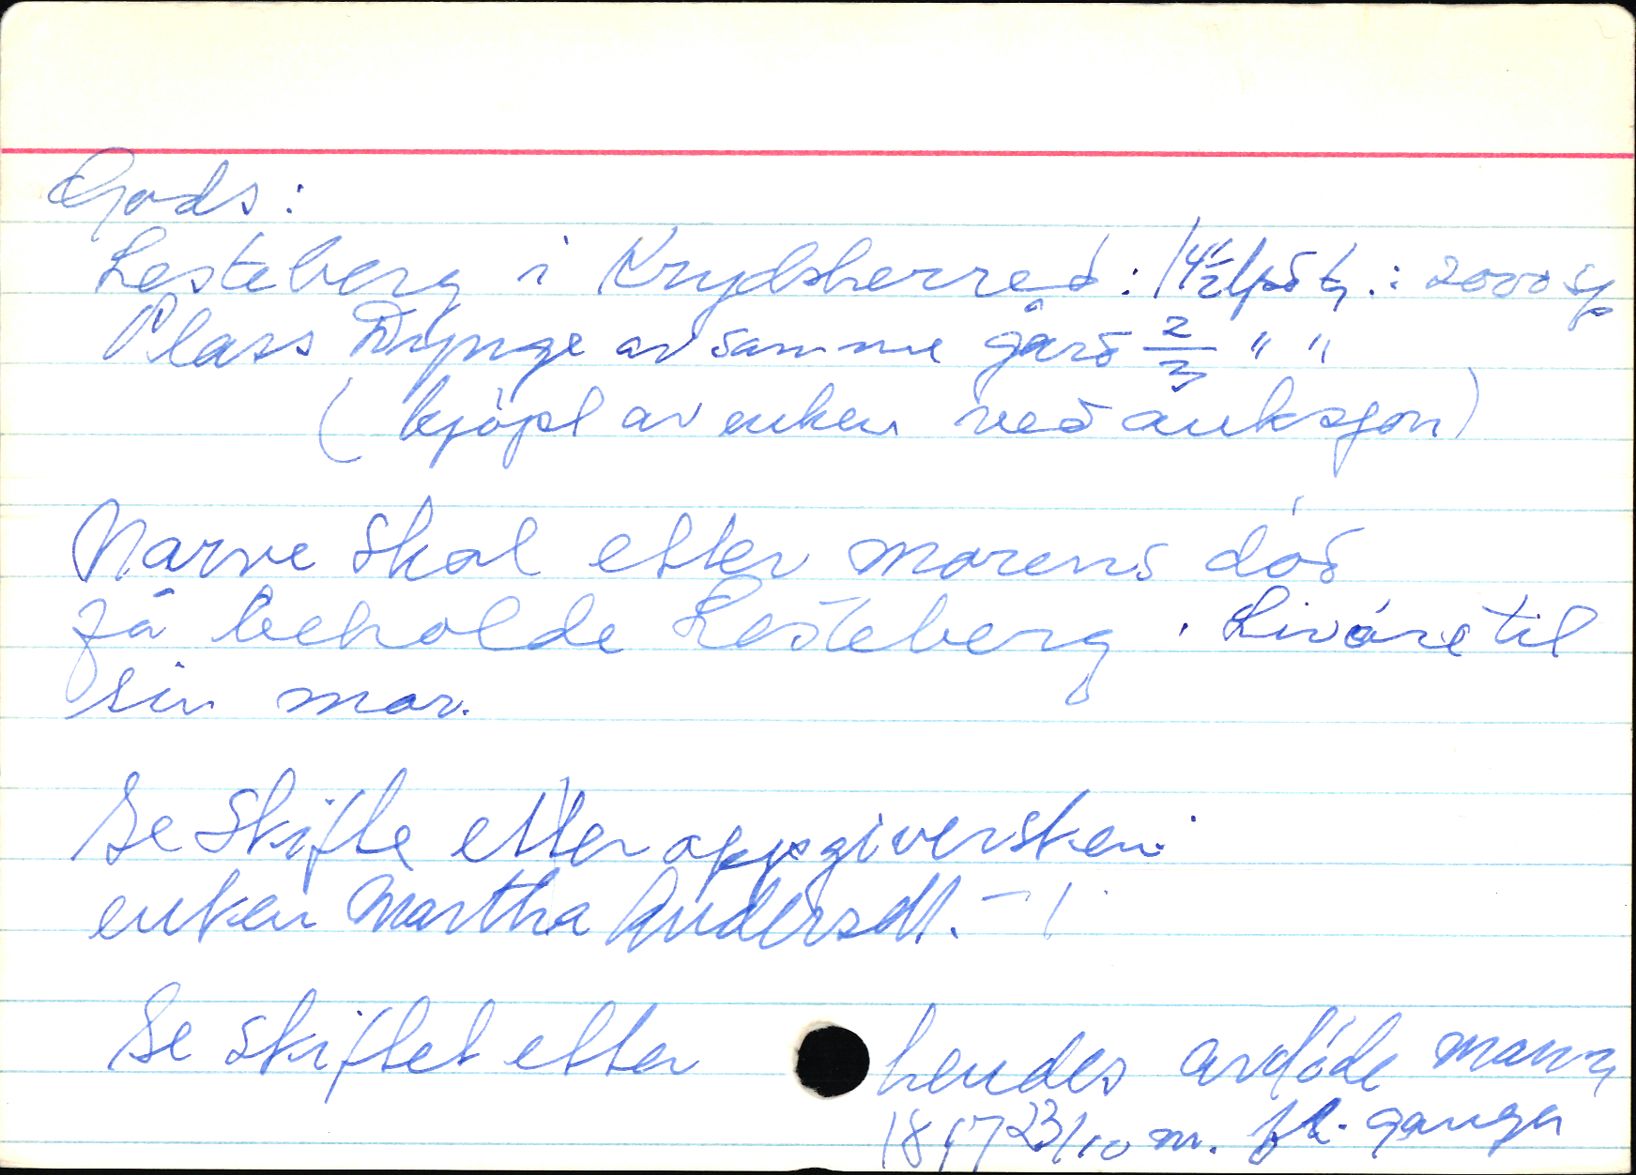 Gods:
Lesteberg i Krydsherred: 14½ lpd tg.: 2000 Sp
Plass Rynge av samme gård 2/3 " "
(kjöpt av enken ved auksjon)
Narve skal etter morens död
få beholde Lesteberg. Livöre til
sin mor.
Se Skifte etter oppgiversken:
enken Martha Andersdt. -
Se skiftet etter hendes avdöde mann
23/10 m. fl. ganger